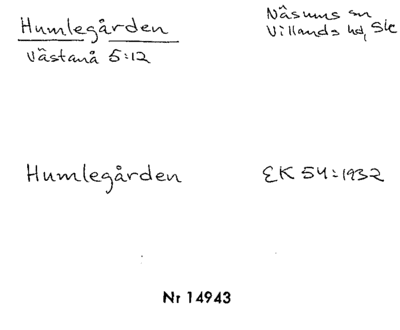 Humlegården
Västanå 5:12
Näsums sn
Villands hd, Sk
Humlegården
EK 54:1932
Nr 14943